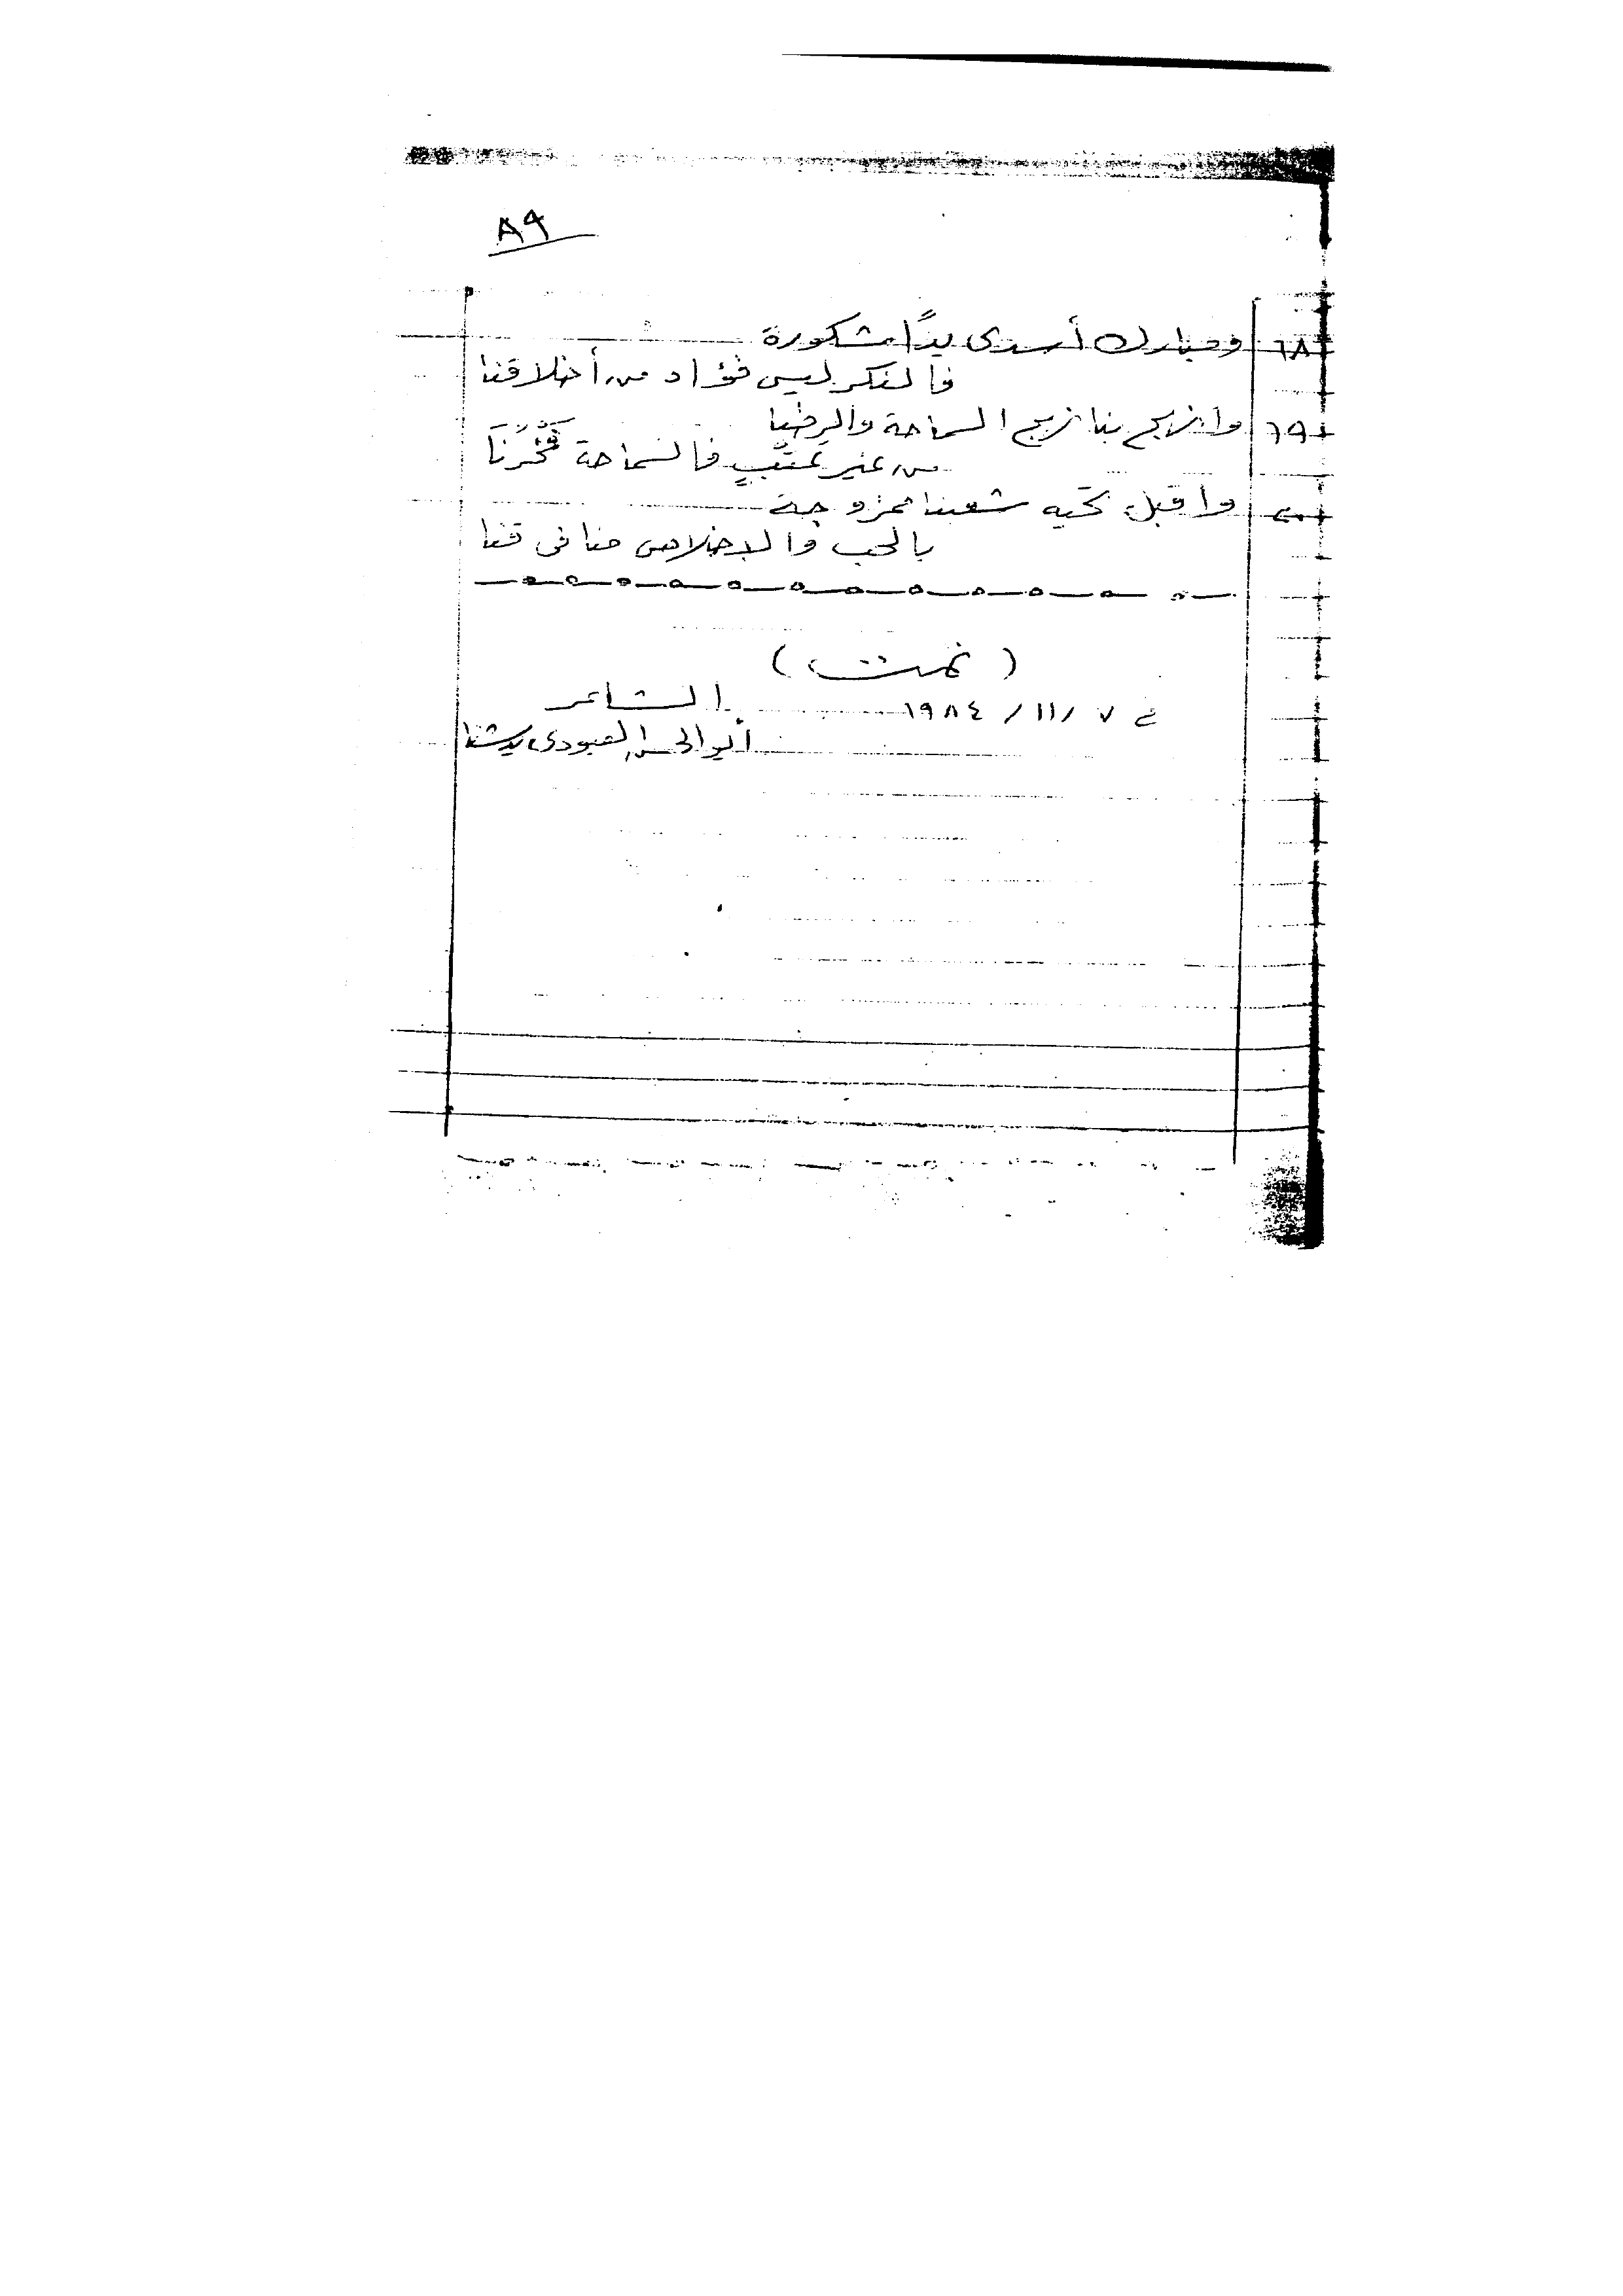 ٨٩
٦٨ ومبارك أسدى يدًا مشكورة
فالنكر ليس فؤاد من أخلاقنا
٦٩ وانهج بنا نهج السماحة والرضا
من غير عتبٍ فالسماحة فخرُنَا
٧٠ واقبل تحيه شعبنا ممزوجة
بالحب والإخلاص منا فى قنا
( تمت )
فى ٧ / ١١ / ١٩٨٤ الشاعر
أبو الحسن العبودى بدشنا